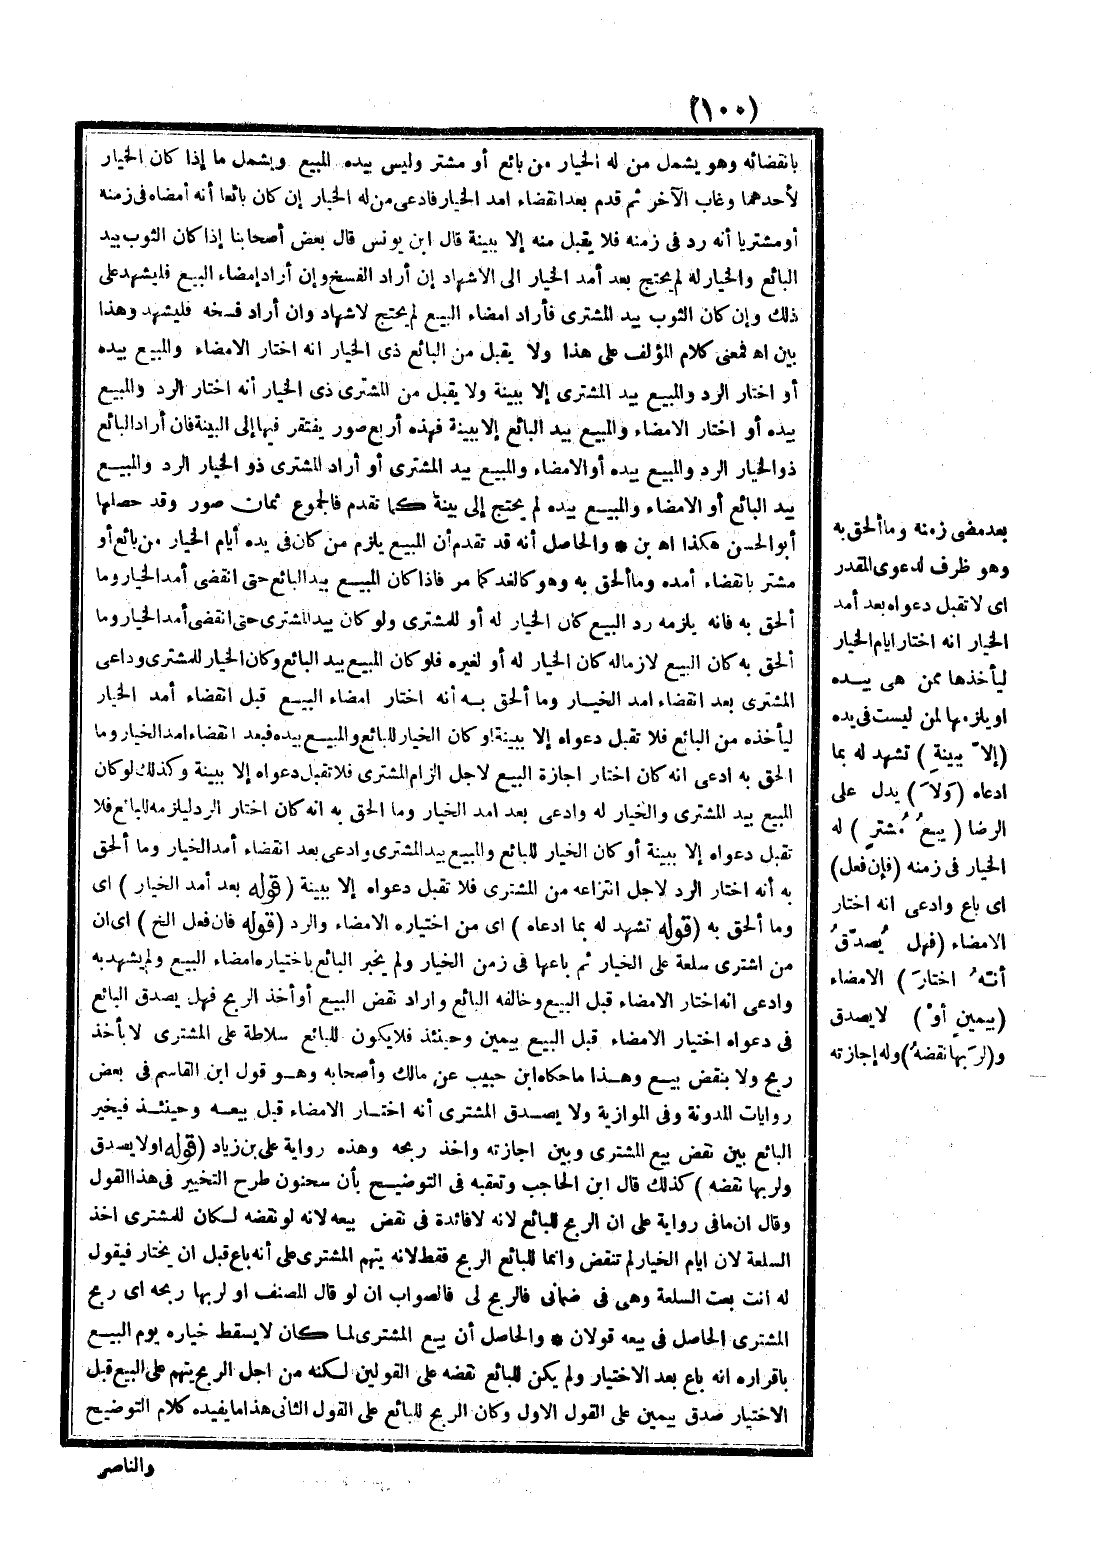 (١٠٠)
بانقضائه وهو يشمل من له الخيار من بائع أو مشتر وليس بيده المبيع ويشمل ما إذا كان الخيار
لأحدهما وغاب الآخر ثم قدم بعد انقضاء امد الخيار فادعى من له الخيار إن كان بائعا أنه أمضاه فى زمنه
أو مشتريا أنه رد فى زمنه فلا يقبل منه إلا ببينة قال ابن يونس قال بعض أصحابنا إذا كان الثوب بيد
البائع والخيار له لم يحتج بعد أمد الخيار الى الاشهاد إن أراد الفسخ وإن أراد إمضاء البيع فليشهد على
ذلك وإن كان الثوب بيد المشترى فأراد امضاء البيع لم يحتج لاشهاد وان أراد فسخه فليشهد وهذا
بين اه فمعنى كلام المؤلف على هذا ولا يقبل من البائع ذى الخيار انه اختار الامضاء والمبيع بيده
أو اختار الرد والمبيع بيد المشترى إلا ببينة ولا يقبل من المشترى ذى الخيار أنه اختار الرد والمبيع
بيده أو اختار الامضاء والمبيع بيد البائع إلا ببينة فهذه أربع صور يفتقر فيها إلى البينة فان أراد البائع
ذو الخيار الرد والمبيع بيده أو الامضاء والمبيع بيد المشترى أو أراد المشترى ذو الخيار الرد والمبيع
بيد البائع أو الامضاء والمبيع بيده لم يحتج إلى بينة كما تقدم فالمجموع ثمان صور وقد حصلها
أبو الحسن هكذا اه بن * والحاصل أنه قد تقدم أن المبيع يلزم من كان فى يده أيام الخيار من بائع أو
مشتر بانقضاء أمده وما ألحق به وهو كالغد كما مر فاذا كان المبيع بيد البائع حتى انقضى أمد الخيار وما
ألحق به فانه يلزمه رد البيع كان الخيار له أو للمشترى ولو كان بيد المشترى حتى انقضى أمد الخيار وما
ألحق به كان البيع لازما له كان الخيار له أو لغيره فلو كان المبيع بيد البائع وكان الخيار للمشترى وداعى
المشترى بعد انقضاء امد الخيار وما ألحق به أنه اختار امضاء البيع قبل انقضاء أمد الخيار
ليأخذه من البائع فلا تقبل دعواه إلا ببينة او كان الخيار للبائع والمبيع بيده فبعد انقضاء امد الخيار وما
الحق به ادعى انه كان اختار اجازة البيع لاجل الزام المشترى فلا تقبل دعواه إلا ببينة وكذلك لو كان
المبيع بيد المشترى والخيار له وادعى بعد امد الخيار وما الحق به انه كان اختار الرد ليلزمه للبائع فلا
تقبل دعواه إلا ببينة أو كان الخيار للبائع والمبيع بيد المشترى وادعى بعد انقضاء أمد الخيار وما ألحق
به أنه اختار الرد لاجل انتزاعه من المشترى فلا تقبل دعواه إلا ببينة (قوله بعد أمد الخيار) اى
وما ألحق به (قوله تشهد له بما ادعاه) اى من اختياره الامضاء والرد (قوله فان فعل الخ) اى ان
من اشترى سلعة على الخيار ثم باعها فى زمن الخيار ولم يخبر البائع باختياره امضاء البيع ولم يشهد به
وادعى انه اختار الامضاء قبل البيع وخالفه البائع واراد نقض البيع أو أخذ الربح فهل يصدق البائع
فى دعواه اختيار الامضاء قبل البيع بيمين وحينئذ فلا يكون للبائع سلاطة على المشترى لا بأخذ
ربح ولا بنقض بيع وهذا ما حكاه ابن حبيب عن مالك وأصحابه وهو قول ابن القاسم فى بعض
روايات المدونة وفى الموازية ولا يصدق المشترى أنه اختار الامضاء قبل بيعه وحينئذ فيخير
البائع بين نقض بيع المشترى وبين اجازته واخذ ربحه وهذه رواية على بن زياد (قوله اولا يصدق
ولربها نقضه) كذلك قال ابن الحاجب وتعقبه فى التوضيح بأن سحنون طرح التخيير فى هذا القول
وقال ان مافى رواية على ان الربح للبائع لانه لا فائدة فى نقض بيعه لانه لو نقضه لكان للمشترى اخذ
السلعة لان ايام الخيار لم تنقض وانما للبائع الربح فقط لانه يتهم المشترى على أنه باع قبل ان يختار فيقول
له انت بعت السلعة وهى فى ضمانى فالربح لى فالصواب ان لو قال المصنف او لربها ربحه اى ربح
المشترى الحاصل فى بيعه قولان * والحاصل أن بيع المشترى لما كان لا يسقط خياره يوم البيع
باقراره انه باع بعد الاختيار ولم يكن للبائع نقضه على القولين لكنه من اجل الربح يتهم على البيع قبل
الاختيار صدق بيمين على القول الاول وكان الربح للبائع على القول الثانى هذا ما يفيده كلام التوضيح
والناصر
بعد مضى زمنه وما ألحق به
وهو ظرف لدعوى المقدر
اى لا تقبل دعواه بعد أمد
الخيار انه اختار ايام الخيار
ليأخذها ممن هى بيده
او يلزمها لمن ليست فى يده
(إلاّ ببينةٍ) تشهد له بما
ادعاه (وَلاَ) يدل على
الرضا (بيعُ مُشترٍ) له
الخيار فى زمنه (فإن فعل)
اى باع وادعى انه اختار
الامضاء (فهل يُصدّقُ
أنّهُ اختارَ) الامضاء
(بيمينٍ أوْ) لا يصدق
و(لربِّها نقضهُ) وله إجازته